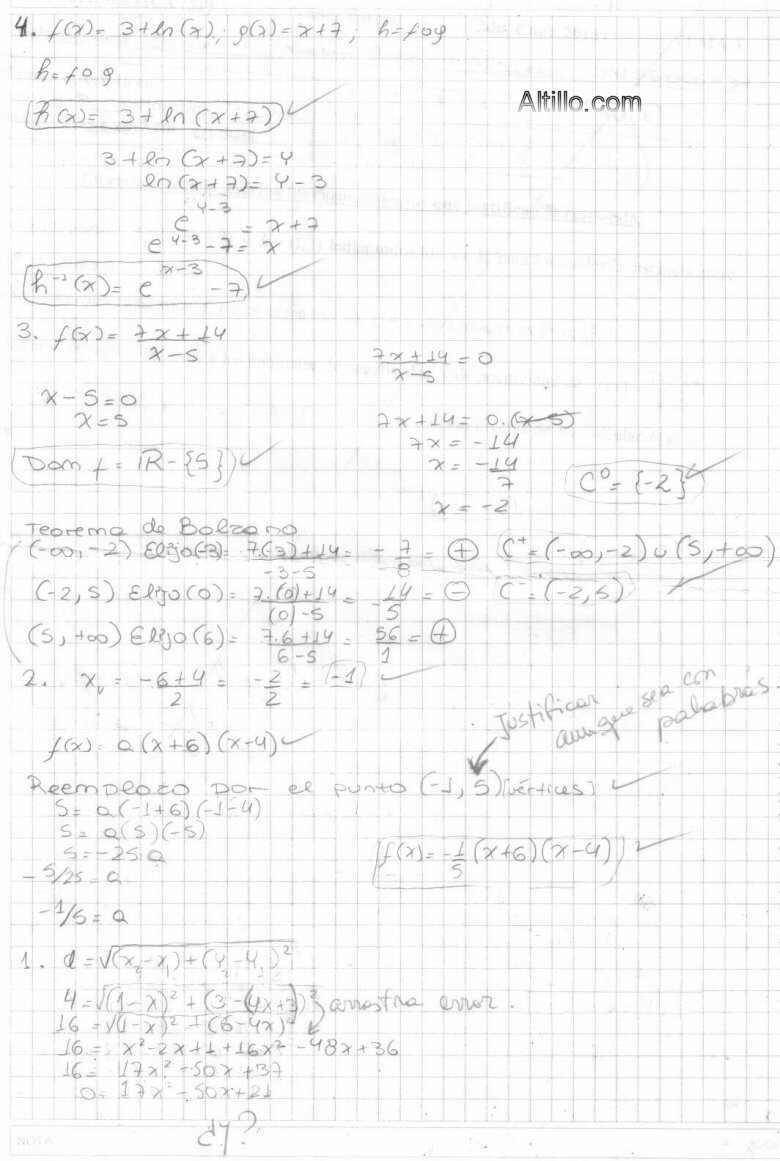 4. f(x) = 3+ln(x); g(x) = x+7; h=fog
h=fog
Altillo.com
h(x) = 3+ln(x+7)
3+ln(x+7)=y
ln(x+7)= y-3
e^(y-3) = x+7
e^(y-3) -7 = x
h⁻¹(x)= e^(x-3) -7
3. f(x)= (7x+14)/(x-5)
(7x+14)/(x-5) = 0
x-5=0
x=5
7x+14= 0.(x-5)
7x = -14
x = -14/7
x = -2
Dom f = IR-{5}
C⁰= {-2}
Teorema de Bolzano
(-∞,-2) Elijo(-3)= (7(-3)+14)/(-3-5) = -7/-8 = ⊕ C⁺=(-∞,-2) ∪ (5,+∞)
(-2,5) Elijo(0)= (7.(0)+14)/((0)-5) = 14/-5 = ⊖ C⁻=(-2,5)
(5,+∞) Elijo(6)= (7.6+14)/(6-5) = 56/1 = ⊕
2. xv = (-6+4)/2 = -2/2 = -1
Justificar
aunque sea con
palabras.
f(x)= a(x+6)(x-4)
Reemplazo por el punto (-1,5) [vértices]
5= a(-1+6)(-1-4)
5= a(5)(-5)
5=-25a
-5/25=a
-1/5=a
f(x)=-1/5(x+6)(x-4)
1. d=√((x₂-x₁)+(y₂-y₁)²
4=√((1-x)²+(3-(4x+3))²
arrastra error.
16 = √(1-x)²+(6-4x)²
16= x²-2x+1+16x²-48x+36
16= 17x²-50x+37
0= 17x²-50x+21
¿y?